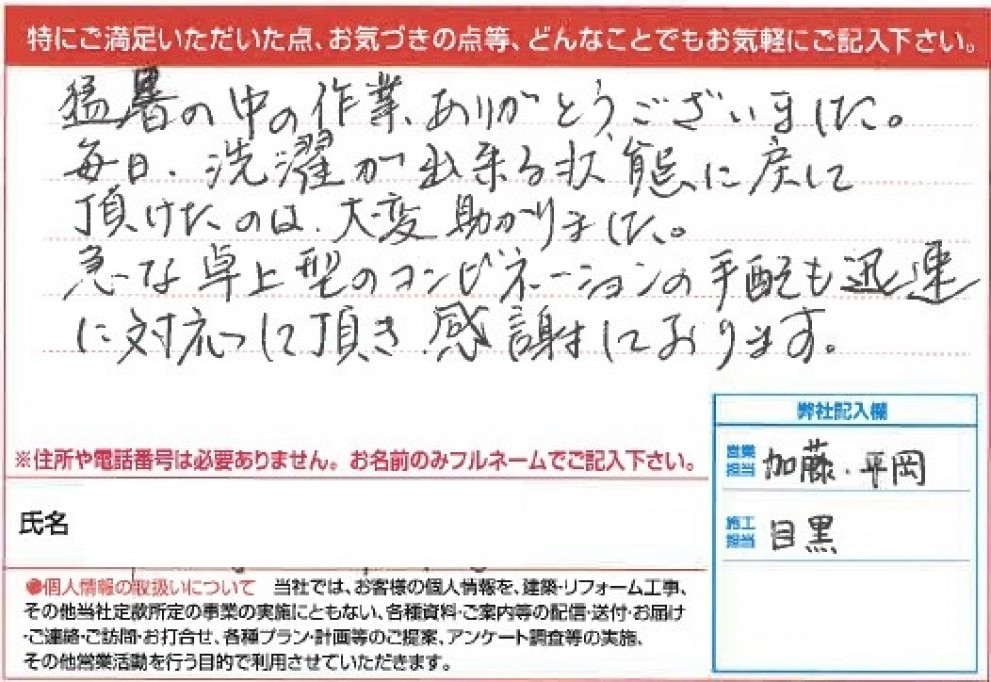 特にご満足いただいた点、お気づきの点等、どんなことでもお気軽にご記入下さい。
猛暑の中の作業、ありがとうございました。
毎日、洗濯が出来る状態に戻して
頂けたのは、大変助かりました。
急な卓上型のコンビネーションの手配も迅速
に対応して頂き、感謝しております。
※住所や電話番号は必要ありません。お名前のみフルネームでご記入下さい。
氏名
弊社記入欄
営業担当 加藤・平岡
施工担当 目黒
●個人情報の取扱いについて 当社では、お客様の個人情報を、建築・リフォーム工事、
その他当社定款所定の事業の実施にともない、各種資料・ご案内等の配信・送付・お届け
・ご連絡・ご訪問・お打合せ、各種プラン・計画等のご提案、アンケート調査等の実施、
その他営業活動を行う目的で利用させていただきます。